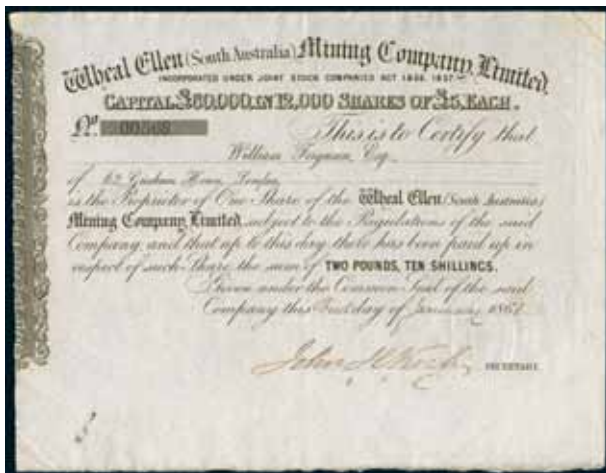 Wheal Ellen (South Australia) Mining Company, Limited.
INCORPORATED UNDER JOINT STOCK COMPANIES ACT 1856, 1857.
CAPITAL £60,000, IN 12,000 SHARES OF £5, EACH.
No.
This is to Certify that
William Esq.
of 62 House, London
is the Proprietor of One Share of the Wheal Ellen (South Australia)
Mining Company, Limited, subject to the Regulations of the said
Company, and that up to this day, there has been paid up in
respect of such Share the sum of TWO POUNDS, TEN SHILLINGS.
Given under the Common Seal of the said
Company this First day of January 1861
John
SECRETARY.